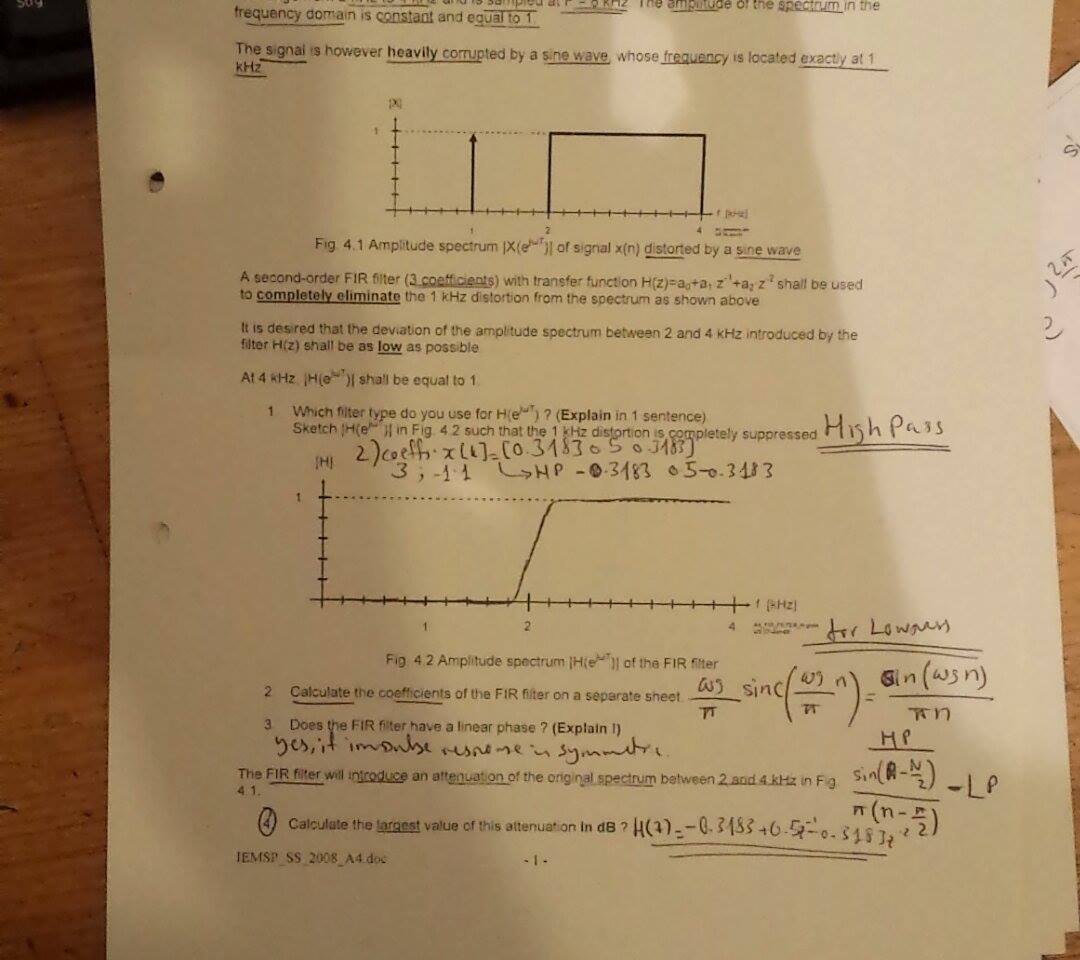 The amplitude of the spectrum in the
frequency domain is constant and equal to 1.
The signal is however heavily corrupted by a sine wave, whose frequency is located exactly at 1
kHz
|X|
1
f [kHz]
1 2 4
Fig. 4.1 Amplitude spectrum |X(e^jωT)| of signal x(n) distorted by a sine wave
A second-order FIR filter (3 coefficients) with transfer function H(z)=a₀+a₁ z⁻¹+a₂ z⁻² shall be used
to completely eliminate the 1 kHz distortion from the spectrum as shown above
It is desired that the deviation of the amplitude spectrum between 2 and 4 kHz introduced by the
filter H(z) shall be as low as possible
At 4 kHz, |H(e^jωT)| shall be equal to 1.
1. Which filter type do you use for H(e^jωT) ? (Explain in 1 sentence)
Sketch |H(e^jωT)| in Fig. 4.2 such that the 1 kHz distortion is completely suppressed High Pass
2) coeffs. x[k]=[0.3183 0 5 0.3183]
3 ; -1 1 ↳HP -0.3183 0 5 -0.3183
|H|
1
f [kHz]
1 2 4
for Lowpass
Fig. 4.2 Amplitude spectrum |H(e^jωT)| of the FIR filter
2. Calculate the coefficients of the FIR filter on a separate sheet. ωg/π sinc(ωg n/π) = sin(ωg n)/πn
3. Does the FIR filter have a linear phase ? (Explain !)
yes, it impulse response is symmetric.
HP
The FIR filter will introduce an attenuation of the original spectrum between 2 and 4 kHz in Fig.
4.1.
- LP
4 Calculate the largest value of this attenuation in dB ? H(z)=-0.3183+0.5z⁻¹-0.3183z⁻²
IEMSP_SS_2008_A4.doc
- 1 -